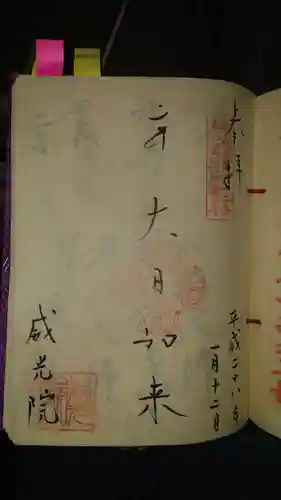 奉拝
平成二十八年
一月十二月
大日如来
威光院